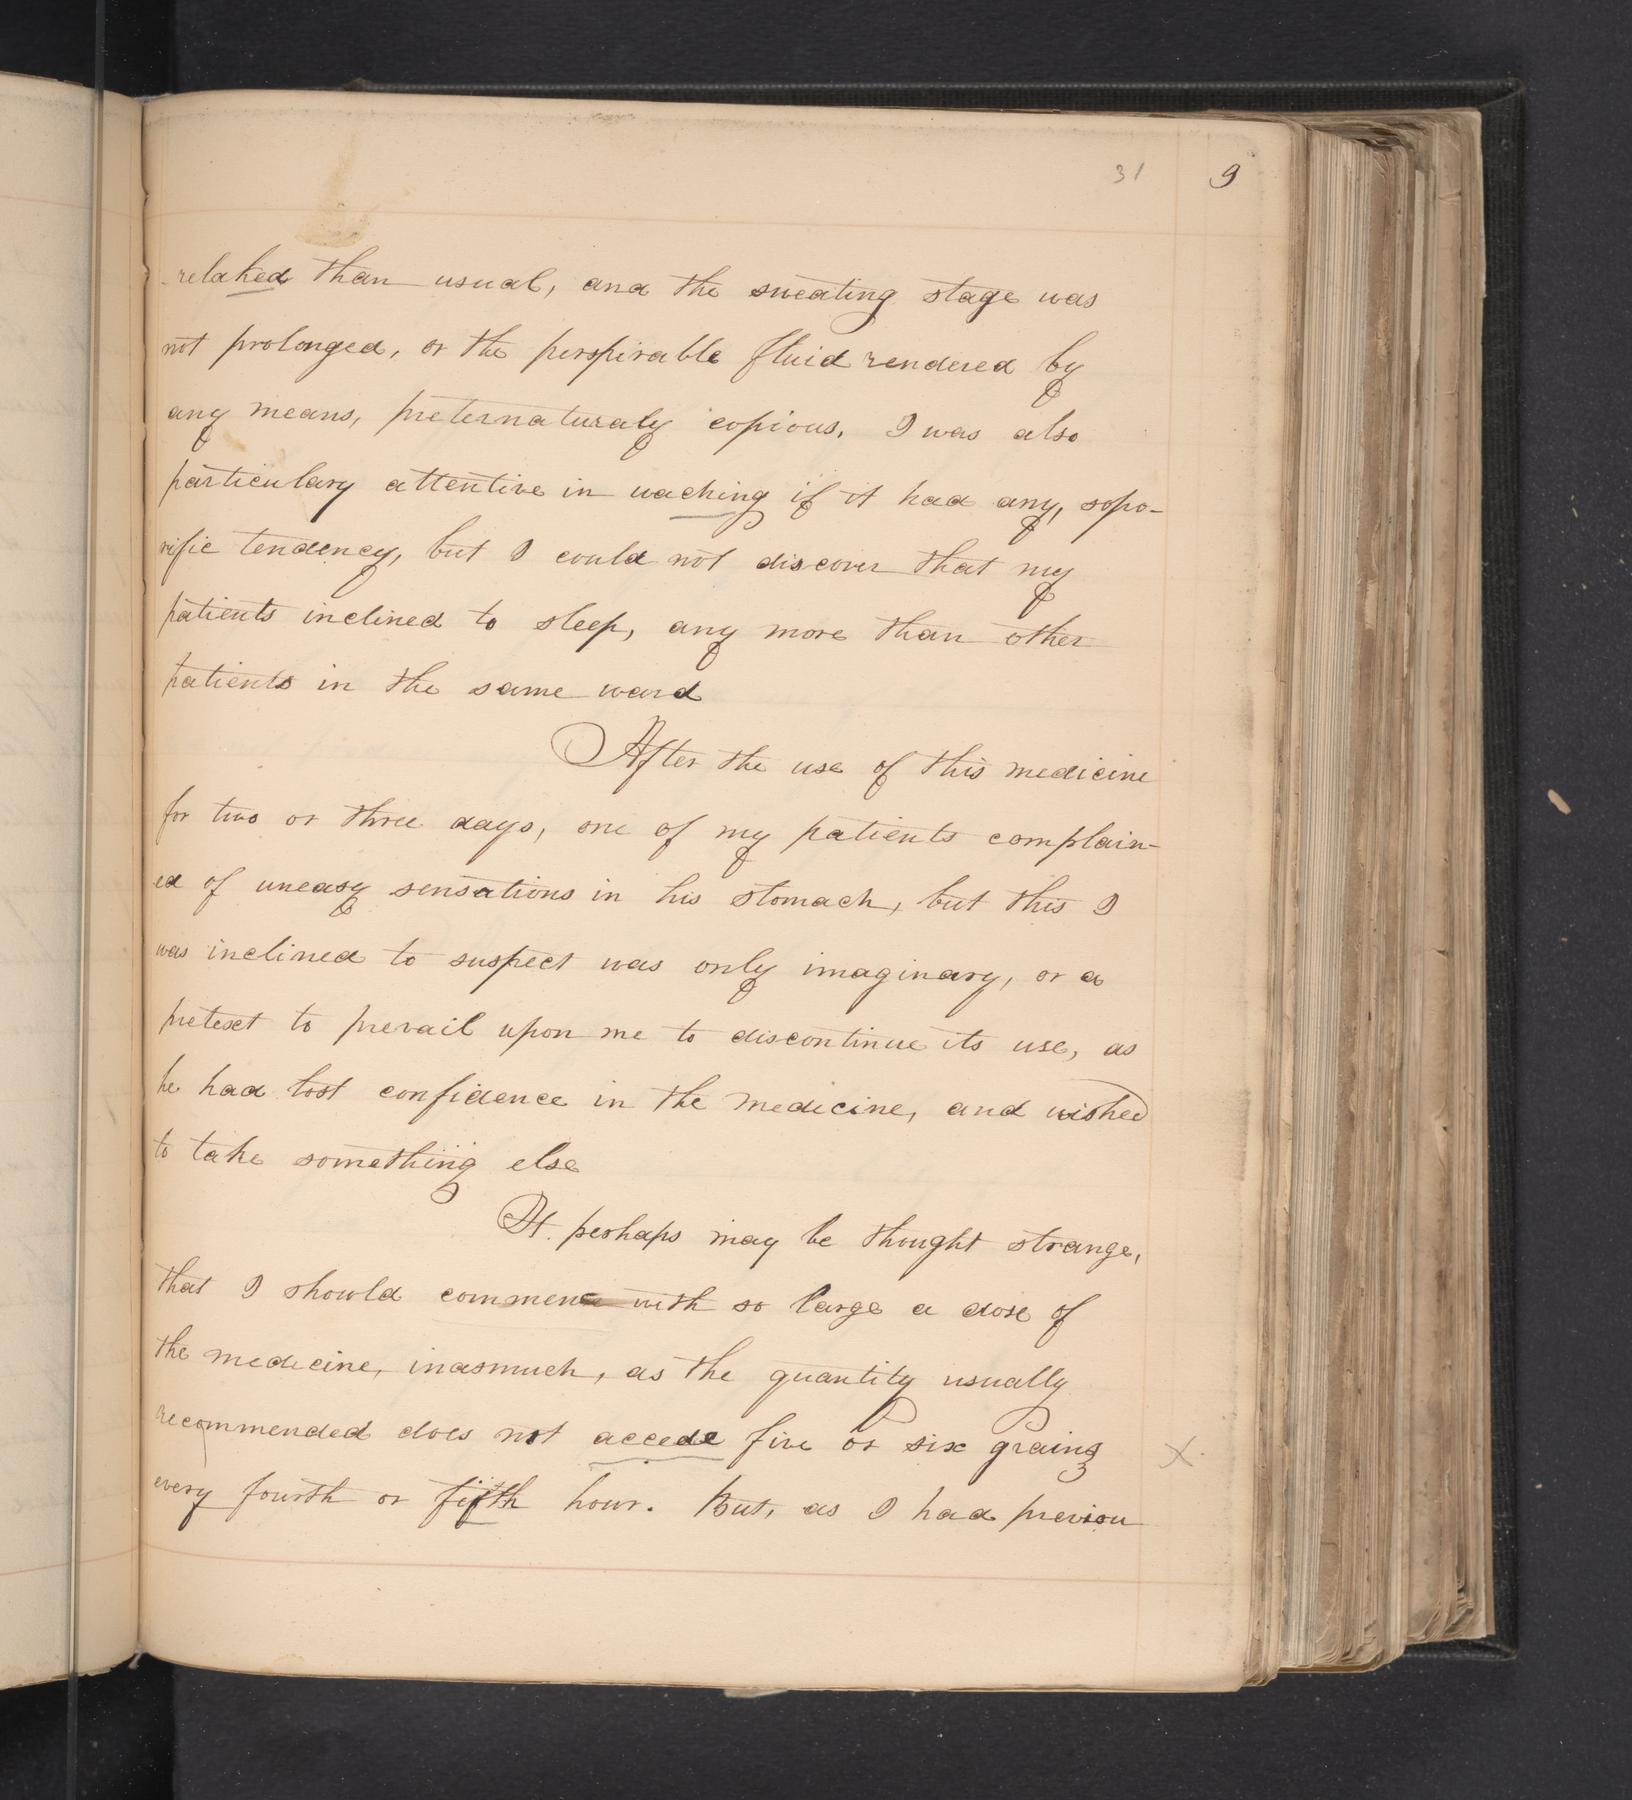 31 9
relaked than usual, and the sweating stage was
not prolonged, or the perspirable fluid rendered by
any means, preternaturaly copious. I was also
particulary attentive in waching if it had any, sopo-
rific tendency, but I could not discover that my
patients inclined to sleep, any more than other
patients in the same ward
After the use of this medicine
for two or three days, one of my patients complain-
ed of uneasy sensations in his stomach, but this I
was inclined to suspect was only imaginary, or a
pretext to prevail upon me to discontinue its use, as
he had lost confidence in the medicine, and wished
to take something else
It perhaps may be thought strange,
that I should commence with so large a dose of
the medicine, inasmuch, as the quantity usually
recommended does not accede five or six grains
X
every fourth or fifth hour. But, as I had previou